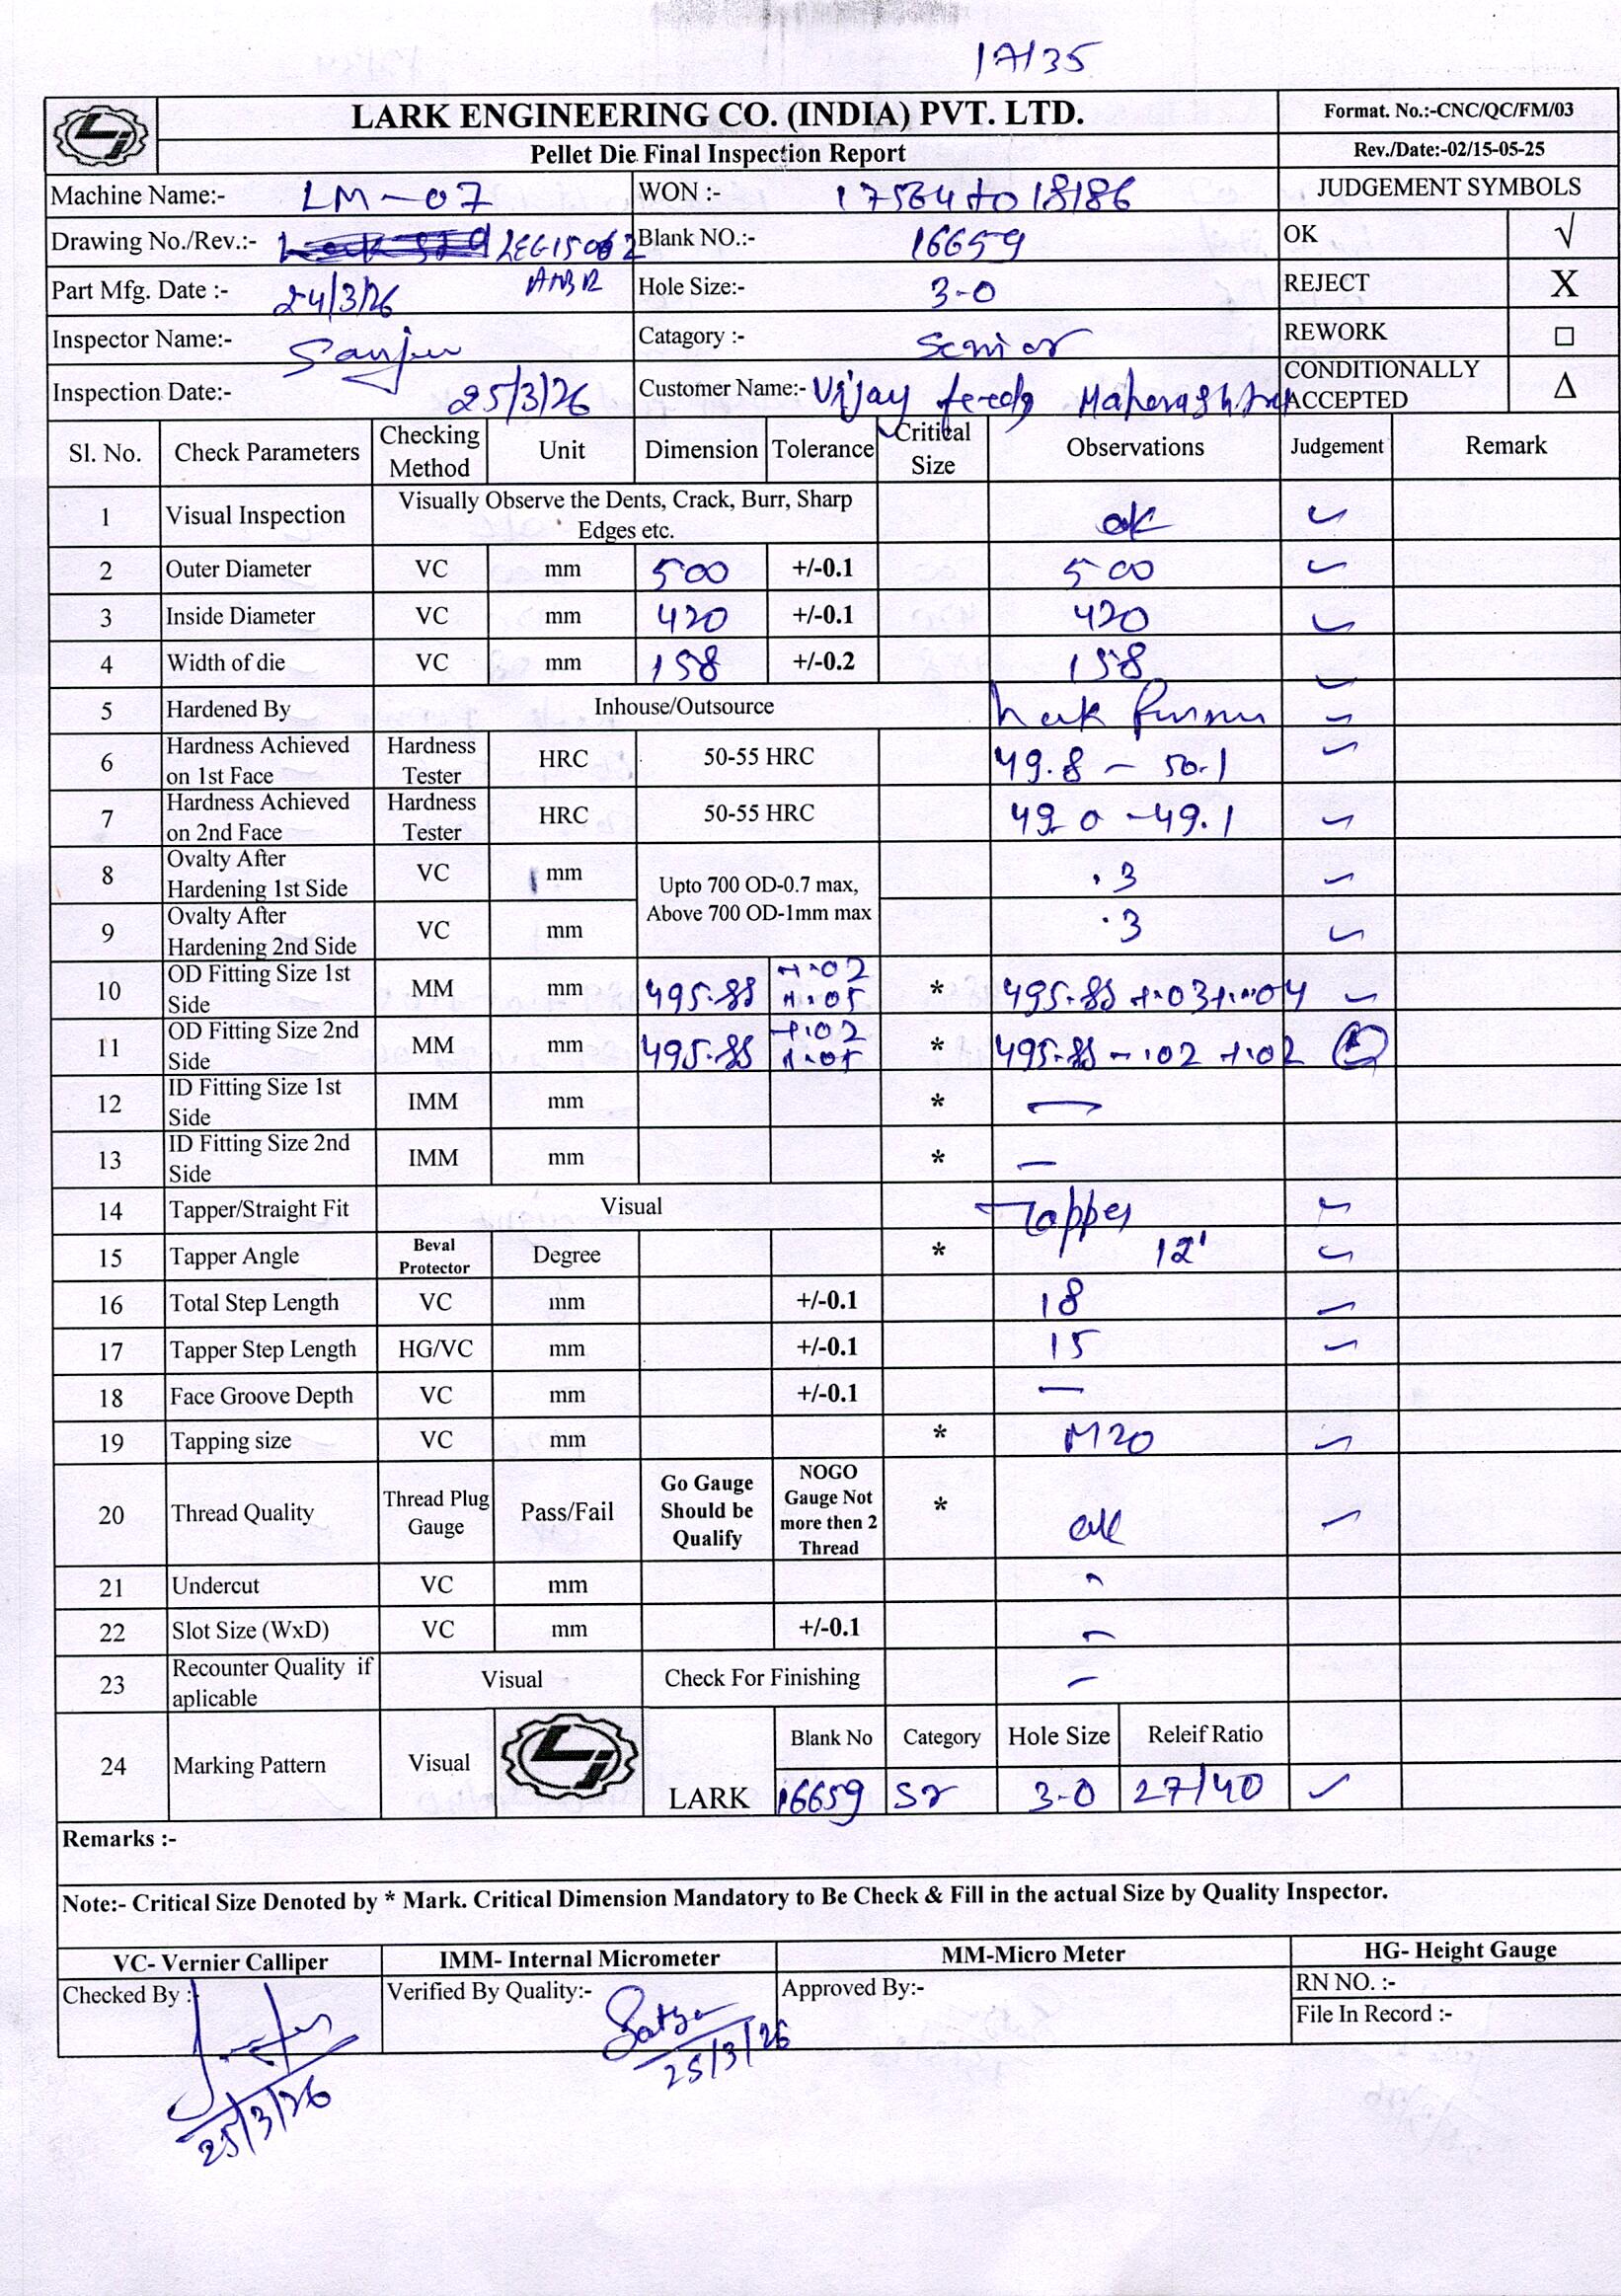 17/35
LARK ENGINEERING CO. (INDIA) PVT. LTD.
Format. No.:-CNC/QC/FM/03
Pellet Die Final Inspection Report
Rev./Date:-02/15-05-25
Machine Name:- LM-07 WON :- 17564 to 18186 JUDGEMENT SYMBOLS
Drawing No./Rev.:- Blank NO.:- 16659 OK √
Part Mfg. Date :- 24/3/26 Hole Size:- 3-0 REJECT X
Inspector Name:- Sanju Catagory :- Senior REWORK □
Inspection Date:- 25/3/26 Customer Name:- Vijay feeds Maharashtra CONDITIONALLY ACCEPTED Δ
Sl. No. Check Parameters Checking Method Unit Dimension Tolerance Critical Size Observations Judgement Remark
1 Visual Inspection Visually Observe the Dents, Crack, Burr, Sharp Edges etc. ok ✓
2 Outer Diameter VC mm 500 +/-0.1 500 ✓
3 Inside Diameter VC mm 420 +/-0.1 420 ✓
4 Width of die VC mm 158 +/-0.2 158 ✓
5 Hardened By Inhouse/Outsource ✓
6 Hardness Achieved on 1st Face Hardness Tester HRC 50-55 HRC 49.8 - 50.1 ✓
7 Hardness Achieved on 2nd Face Hardness Tester HRC 50-55 HRC 49.0 - 49.1 ✓
8 Ovalty After Hardening 1st Side VC mm Upto 700 OD-0.7 max, Above 700 OD-1mm max .3 ✓
9 Ovalty After Hardening 2nd Side VC mm .3 ✓
10 OD Fitting Size 1st Side MM mm 495.88 +.02 +.05 * 495.88 +.03 +.04 ✓
11 OD Fitting Size 2nd Side MM mm 495.88 +.02 +.05 * 495.88 -.02 +.02
12 ID Fitting Size 1st Side IMM mm * —
13 ID Fitting Size 2nd Side IMM mm * —
14 Tapper/Straight Fit Visual Tapper ✓
15 Tapper Angle Beval Protector Degree * 12' ✓
16 Total Step Length VC mm +/-0.1 18 ✓
17 Tapper Step Length HG/VC mm +/-0.1 15 ✓
18 Face Groove Depth VC mm +/-0.1 —
19 Tapping size VC mm * M20 ✓
20 Thread Quality Thread Plug Gauge Pass/Fail Go Gauge Should be Qualify NOGO Gauge Not more then 2 Thread * ok ✓
21 Undercut VC mm -
22 Slot Size (WxD) VC mm +/-0.1 -
23 Recounter Quality if aplicable Visual Check For Finishing -
24 Marking Pattern Visual LARK Blank No Category Hole Size Releif Ratio
16659 Sr 3-0 27/40 ✓
Remarks :-
Note:- Critical Size Denoted by * Mark. Critical Dimension Mandatory to Be Check & Fill in the actual Size by Quality Inspector.
VC- Vernier Calliper IMM- Internal Micrometer MM-Micro Meter HG- Height Gauge
Checked By :- Verified By Quality:- Satya Approved By:- RN NO. :-
File In Record :-
25/3/26
25/3/26